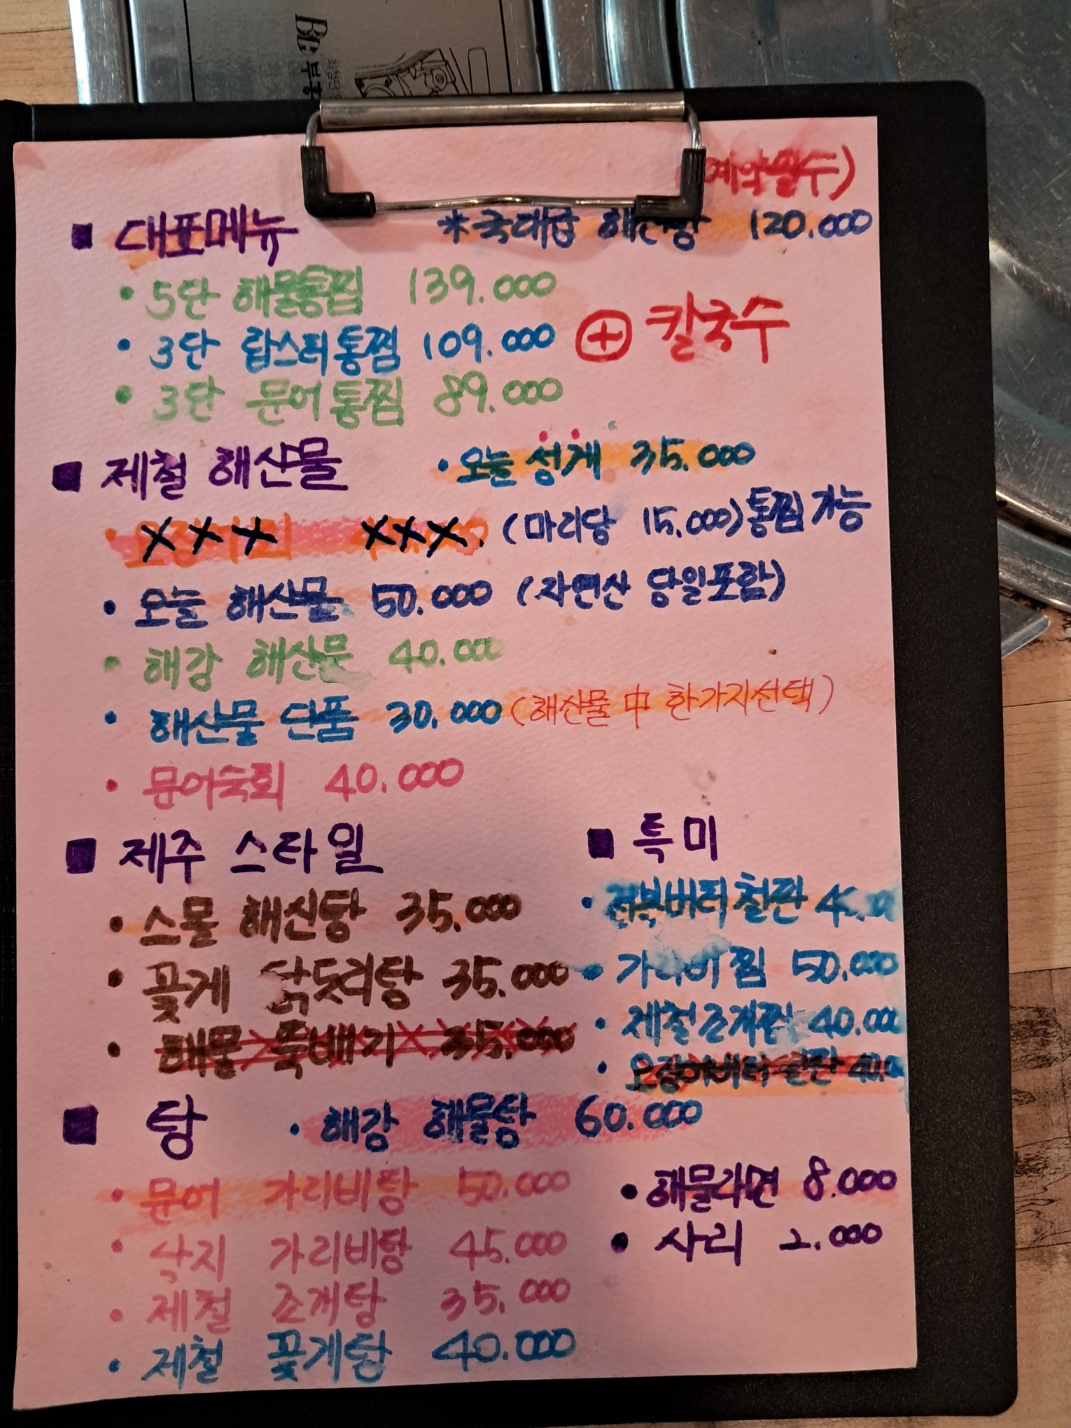 BC
예약필수)
■ 대표메뉴 *국대급 해신탕 120.000
• 5단 해물통찜 139.000
• 3단 랍스터통찜 109.000 ⊕ 칼국수
• 3단 문어통찜 89.000
■ 제철 해산물 • 오늘 성게 35.000
• xxx xxx. (마리당 15.000)통찜 가능
• 오늘 해산물 50.000 (자연산 당일포함)
• 해강 해산물 40.000
• 해산물 단품 30.000 (해산물 中 한가지선택)
• 문어숙회 40.000
■ 제주 스타일
• 스물 해신탕 35.000
• 꽃게 닭도리탕 35.000
• 해물 뚝배기 35.000
■ 특미
• 전복버터철판
• 가리비찜 50.000
• 제철조개찜 40.000
• 오징어버터 철판
■ 탕 • 해강 해물탕 60.000
• 문어 가리비탕 50.000
• 낙지 가리비탕 45.000
• 제철 조개탕 35.000
• 제철 꽃게탕 40.000
• 해물라면 8.000
• 사리 2.000